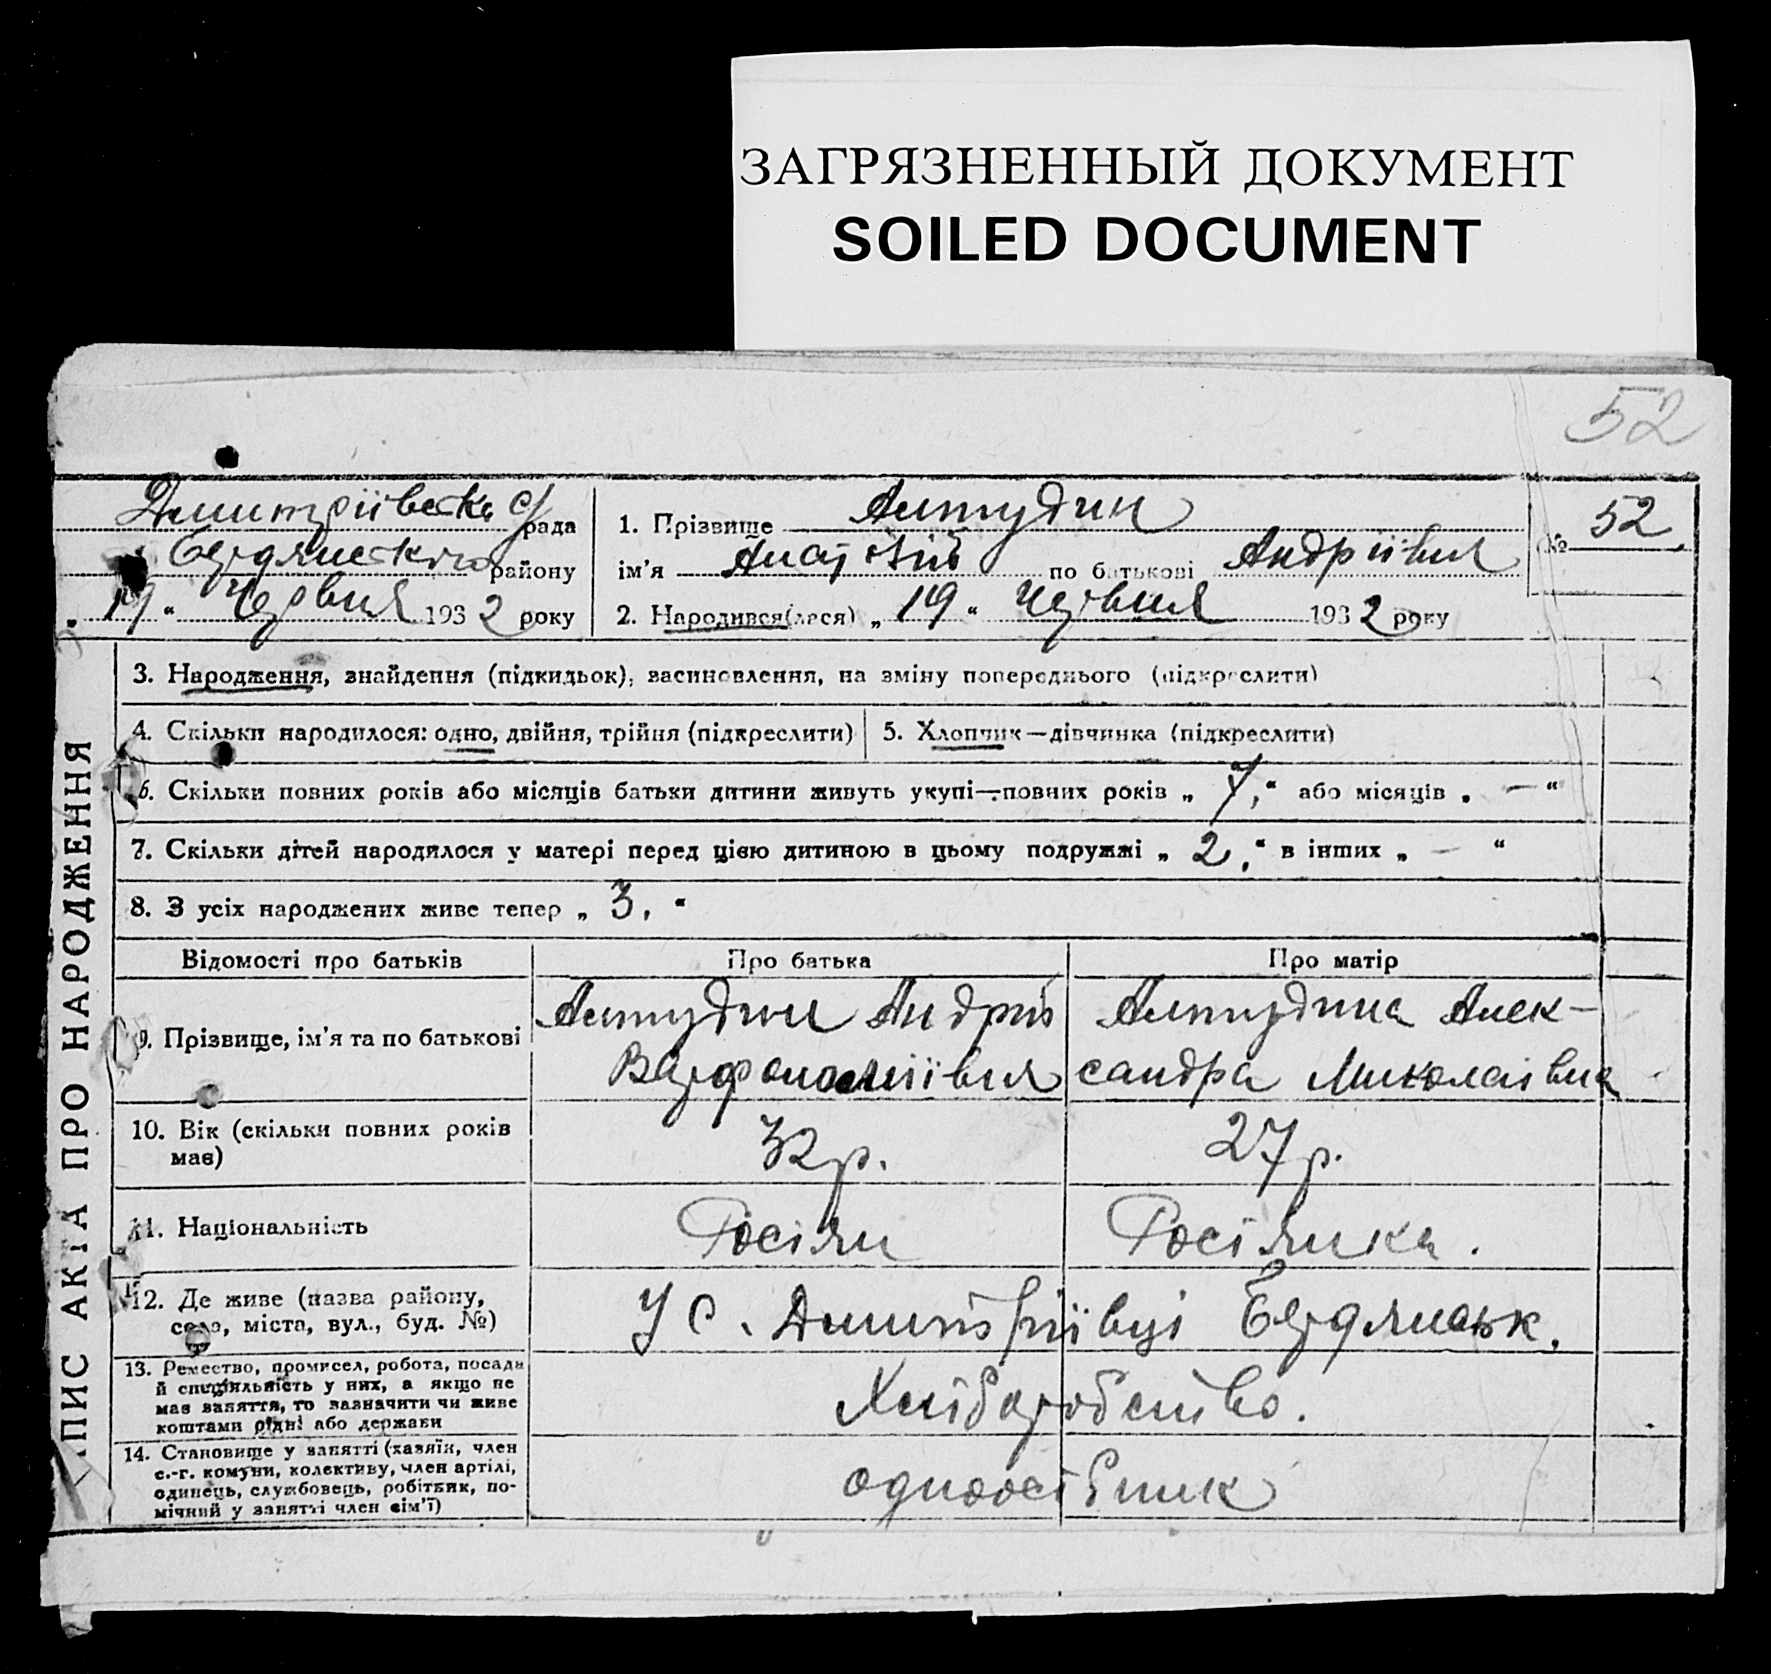 ЗАГРЯЗНЕННЫЙ ДОКУМЕНТ
SOILED DOCUMENT
52
Дмитріївська с/рада
Бердянського району
„19“ Червня 1932 року
1. Прізвище Алтудин
ім'я по батькові Андріївич
№ 52.
2. Народився(лася) „19“ червня 1932 року
ПИС АКТА ПРО НАРОДЖЕННЯ
3. Народження, знайдення (підкидьок), засиновлення, на зміну попереднього (підкреслити)
4. Скільки народилося: одно, двійня, трійня (підкреслити)
5. Хлопчик—дівчинка (підкреслити)
6. Скільки повних років або місяців батьки дитини живуть укупі—повних років „7,“ або місяців „—“
7. Скільки дітей народилося у матері перед цією дитиною в цьому подружжі „2,“ в інших „—“
8. З усіх народжених живе тепер „3.“
Відомості про батьків
Про батька
Про матір
9. Прізвище, ім'я та по батькові
Алтудин Андрій
Алтудина Алек-
сандра Миколаївна
10. Вік (скільки повних років має)
32 р.
27 р.
11. Національність
Росіян
Росіянка.
12. Де живе (назва району, село, міста, вул., буд. №)
У с. Дмитріївці Бердянськ.
13. Ремество, промисел, робота, посада
й спеціяльність у них, а якщо не
має заняття, то зазначити чи живе
коштами рідні або держави
Хліборобство.
14. Становище у занятті (хазяїн, член
с.-г. комуни, колективу, член артілі,
одинець, службовець, робітник, по-
мічний у занятті член сім'ї)
одноосібник